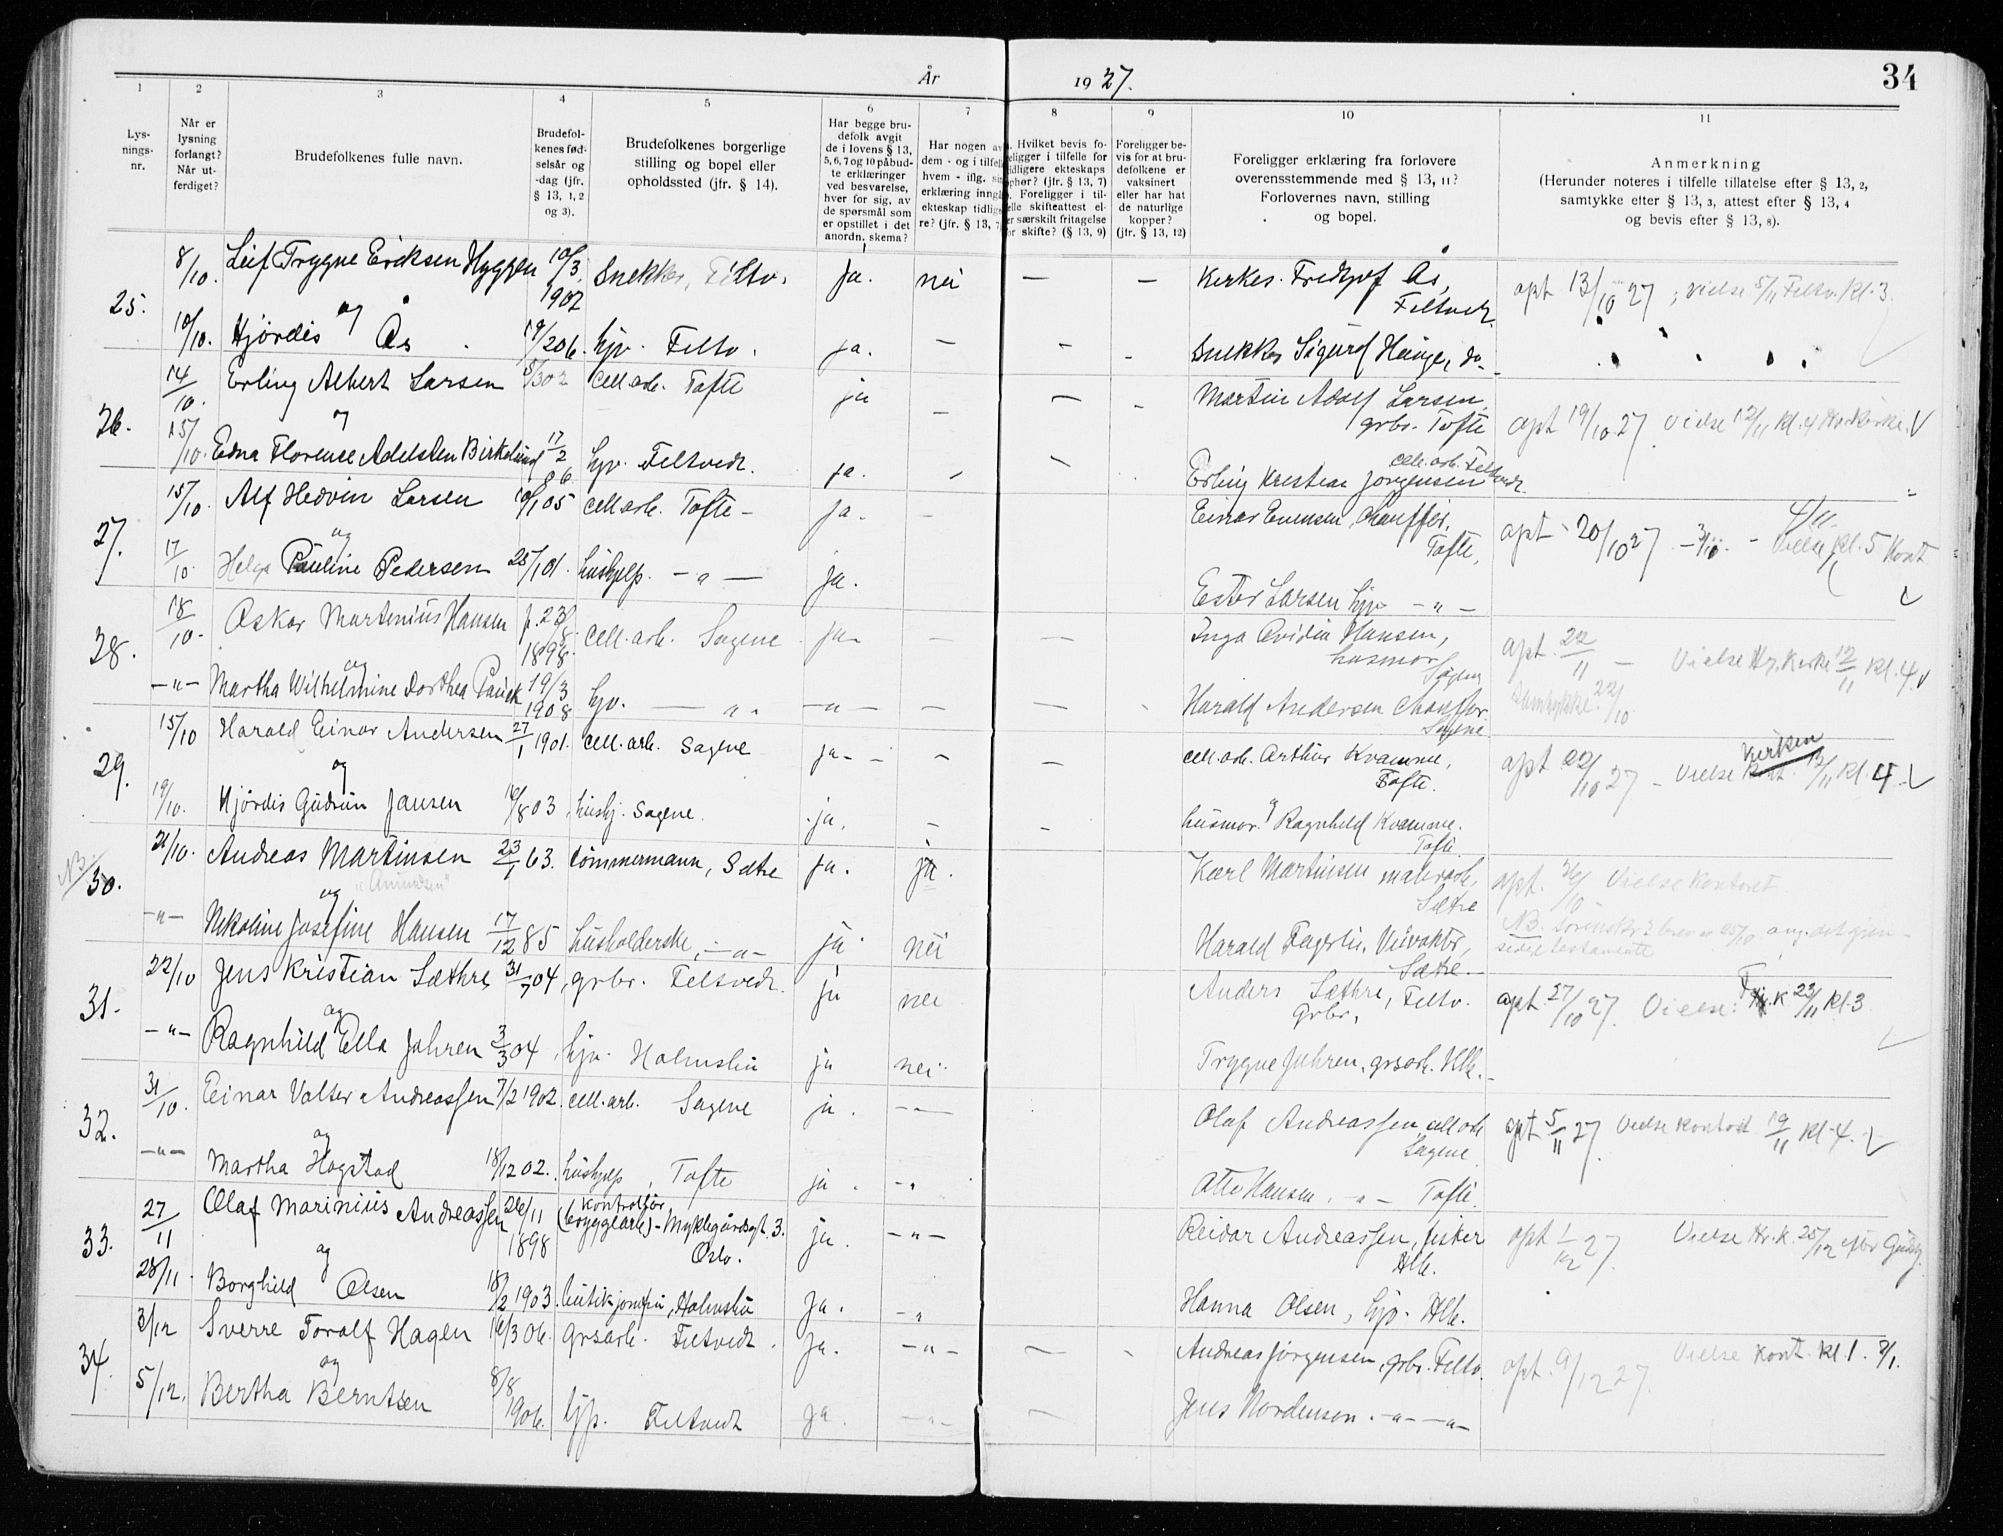 År 1927. 34
1 2 3 4 5 6 7 8 9 10 11
Lys-
nings-
nr.
Når er
lysning
forlangt?
Når ut-
ferdiget?
Brudefolkenes fulle navn.
Brudefol-
kenes fød-
selsår og
-dag (jfr.
§ 13, 1, 2
og 3).
Brudefolkenes borgerlige
stilling og bopel eller
opholdssted (jfr. § 14).
Har begge bru-
defolk avgit
de i lovens § 13,
5, 6, 7 og 10 påbud-
te erklæringer
ved besvarelse,
hver for sig, av
de spørsmål som
er opstillet i det
anordn. skema?
Har nogen av
dem - og i tilfelle
hvem - iflg.
erklæring inngå
ekteskap tidlige-
re? (jfr. § 13, 7
Hvilket bevis fo-
religger i tilfelle for
tidligere ekteskaps
ophør? (jfr. § 13, 7)
Foreligger i til-
felle skifteattest el-
er særskilt fritagelse
for skifte? (§ 13, 9)
Foreligger be-
vis for at bru-
defolkene er
vaksinert
eller har hat
de naturlige
kopper?
(jfr. § 13, 12)
Foreligger erklæring fra forlovere
overensstemmende med § 13, 11?
Forlovernes navn, stilling
og bopel.
Anmerkning
(Herunder noteres i tilfelle tillatelse efter § 13, 2,
samtykke efter § 13, 3, attest efter § 13, 4
og bevis efter § 13, 8).
25. 8/10. Leif Trygve Eriksen Hyggen 10/3 1902 Snekker, Filtv. Ja. nei — — Kirkes. Fridtjof Ås, Filtvedt. opt 13/10 27; vielse 5/11 Filtv. kl. 3.
og
10/10. Hjørdis Ås 19/2 06. hjv. Filtv. ja. — — - Snekker Sigurd Hauge, do-
26. 14/10. Erling Albert Larsen 5/3 02 cell.arb. Tofte ja — — - Martin Adolf Larsen, grbr. Tofte opt 19/10 27. Vielse 12/11 kl. 4 Hv. kirke. V
og
15/10. Edna Florense Adelsten Birkelund 17/2 06 hjv. Filtvedt. ja. - — Erling Kristian Jørgensen cell.arb. Filtvedt.
27. 15/10. Alf Hedvin Larsen 10/1 05 cell.arb. Tofte - ja. — Einar Evensen, chauffør, Tofte, opt 20/10 27. Vielse 4/11 kl. 5 Kont.
og
17/10. Helga Pauline Pedersen 25/1 01. hushjelp. — " — ja. Ester Larsen hjv — " —
28. 18/10. Oskar Martinius Hansen f. 23/8 1898. cell.arb. Sagene. ja- — — Inga Ovidia Hansen, husmor Sagene opt. 22/11 — Vielse Hv. kirke 12/11 kl. 4. V
og
— " — Martha Wilhelmine Dorthea Pauck 19/3 1908 hjv. — " - — " — — — - Harald Andersen Chauffør. Sagene Samtykke 22/10
29. 15/10 Harald Einar Andersen 27/1 1901. cell.arb. Sagene ja- - — — cell.arb. Arthur Kvamme, Tofte. opt 22/10 27 - Vielse Kirken 12/11 kl. 4.
og
19/10. Hjørdis Gudrun Jansen 10/8 03 hushj. Sagene. ja, — — husmor Ragnhild Kvamme. Tofte
NB
30. 21/10. Andreas Martinsen 23/1 63. tømmermann, Sætre ja. ja. Karl Martinsen malerarb., Sætre opt. 26/10 Vielse Kontoret.
"Amundsen"
og
— " — Nikoline Josefine Hansen 17/12 85 husholderske, — " — ja nei Harald Fagerli, Sætre. NB. 25/10 ang. det gjen-
sidige testamente
31. 22/10 Jens Kristian Sæthre 31/7 04, grbr. Filtvedt. ja nei Anders Sæthre, Filtv. Grbr, opt 27/10 27. Vielse: 23/11 kl. 3
og
— " — Ragnhild Ella Jahren 3/3 04, hjv. Holmsbu ja nei. Trygve Jahren, grsarb. Hlb. -
32. 31/10. Einar Valter Andreassen 7/2 1902. cell.arb. Sagene ja. — " — Olaf Andreassen, cell.arb Sagene opt 5/11 27. Vielse kontoret 19/11 kl. 4.
og
— " — Martha Hogstad 18/12 02. hushjelp, Tofte ja. - " Otto Hansen, — " — Tofte.
33. 27/11 Olaf Marinius Andreassen 26/11 1898 kontrollør (bryggearb) - Myklegårdsgt. 3. Oslo. ja. — " — Reidar Andreassen, fisker Hlb. opt 1/12 27. Vielse Hv.k. 25/12 efter Gudstj.
og
28/11. Borghild Olsen 18/2 1903. butikjomfru, Holmsbu ja. - " Hanna Olsen, hjv. Hlb.
34. 3/12 Sverre Toralf Hagen 16/3 06. grsarb. Filtvedt. ja. — " — — - Andreas Jørgensen, grbr. Filtv. opt. 9/12 27. Vielse kont. kl. 1.
og
5/12. Bertha Berntsen 8/8 1906. hjv. Filtvedt ja. — " — — Jens Nordensen. — " — — " —